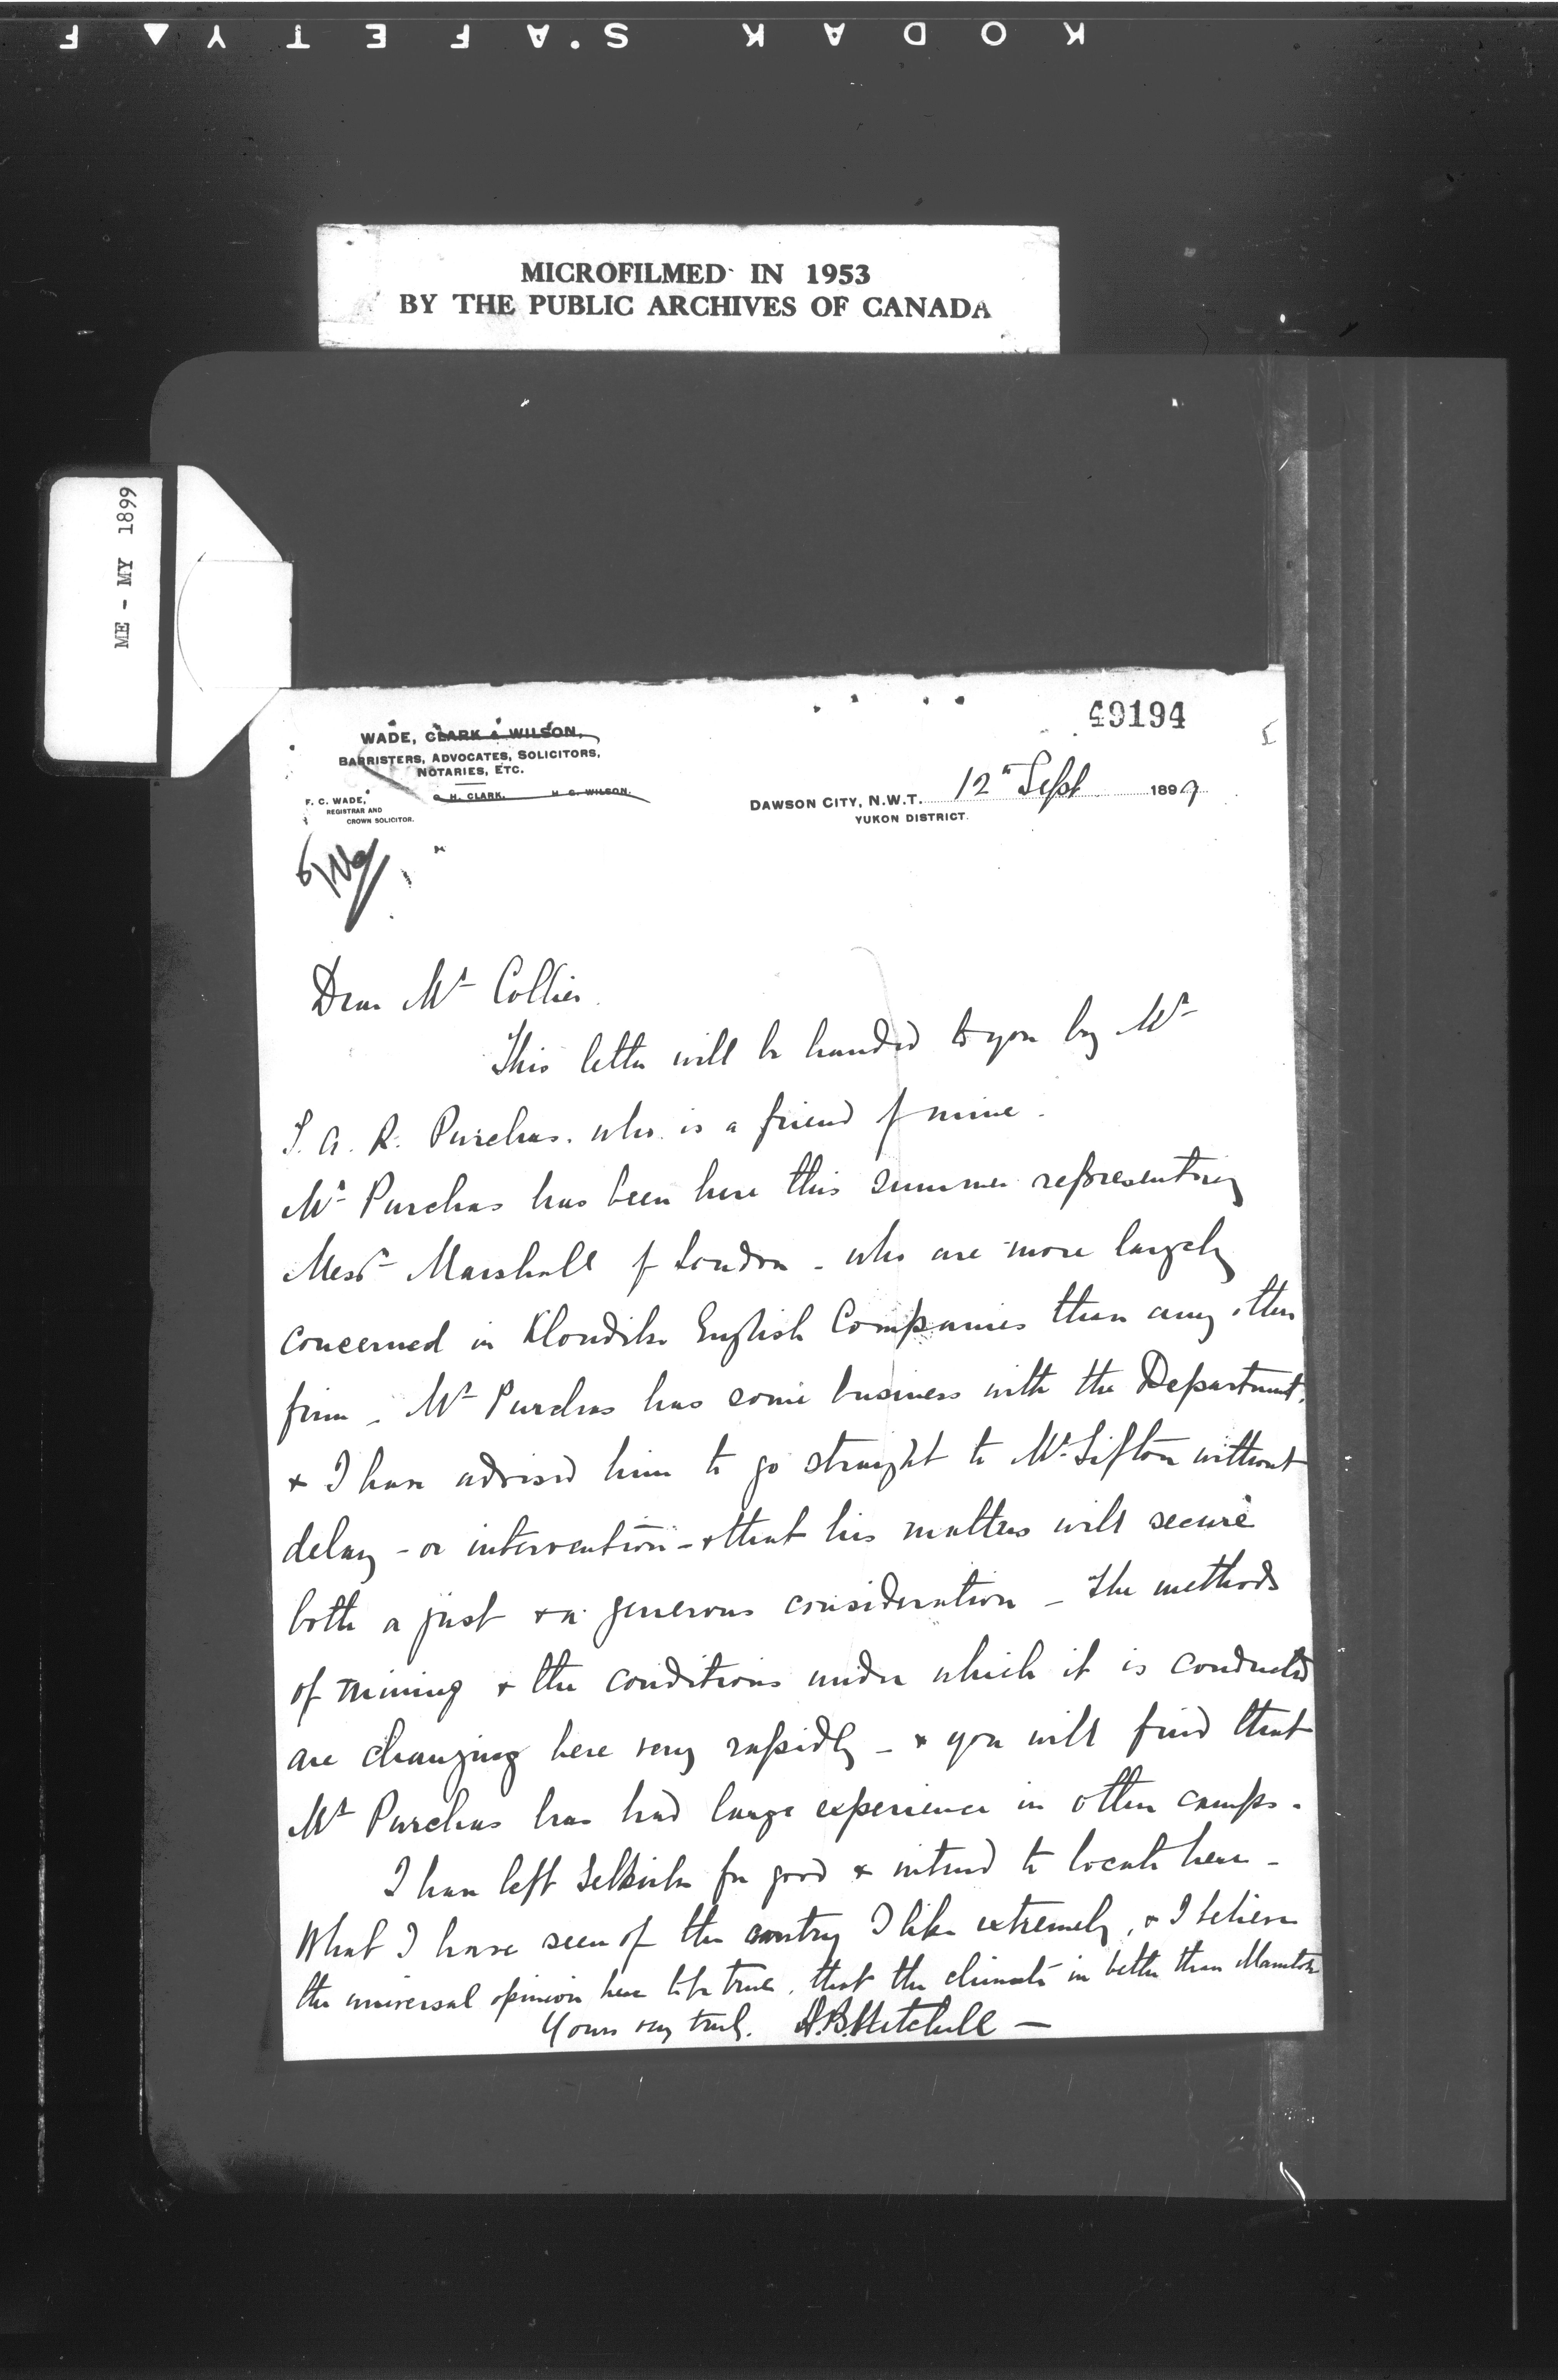 KODAK SAFETY F
MICROFILMED IN 1953
BY THE PUBLIC ARCHIVES OF CANADA
ME - MY 1899
49194
WADE, CLARK & WILSON,
BARRISTERS, ADVOCATES, SOLICITORS,
NOTARIES, ETC.
F. C. WADE,
REGISTRAR AND
CROWN SOLICITOR.
H. CLARK. H. C. WILSON.
DAWSON CITY, N.W.T. 12th Sept 1899
YUKON DISTRICT.
Dear Mr Collier.
This letter will be handed to you by Mr
T. A. R. Purchas. who is a friend of mine.
Mr Purchas has been here this summer representing
Messrs Marshall of London - who are more largely
concerned in Klondike English Companies than any other
firm - Mr Purchas has some business with the Department,
& I have advised him to go straight to Mr. Sifton without
delay - or intervention - & that his matters will secure
both a just & a generous consideration - The methods
of mining & the conditions under which it is conducted
are changing here very rapidly - & you will find that
Mr Purchas has had large experience in other camps.
I have left Selkirk for good & intend to locate here -
What I have seen of the country I like extremely, & I believe
the universal opinion here to be true, that the climate is better than Manitoba
Yours very truly. A.B. Mitchell -